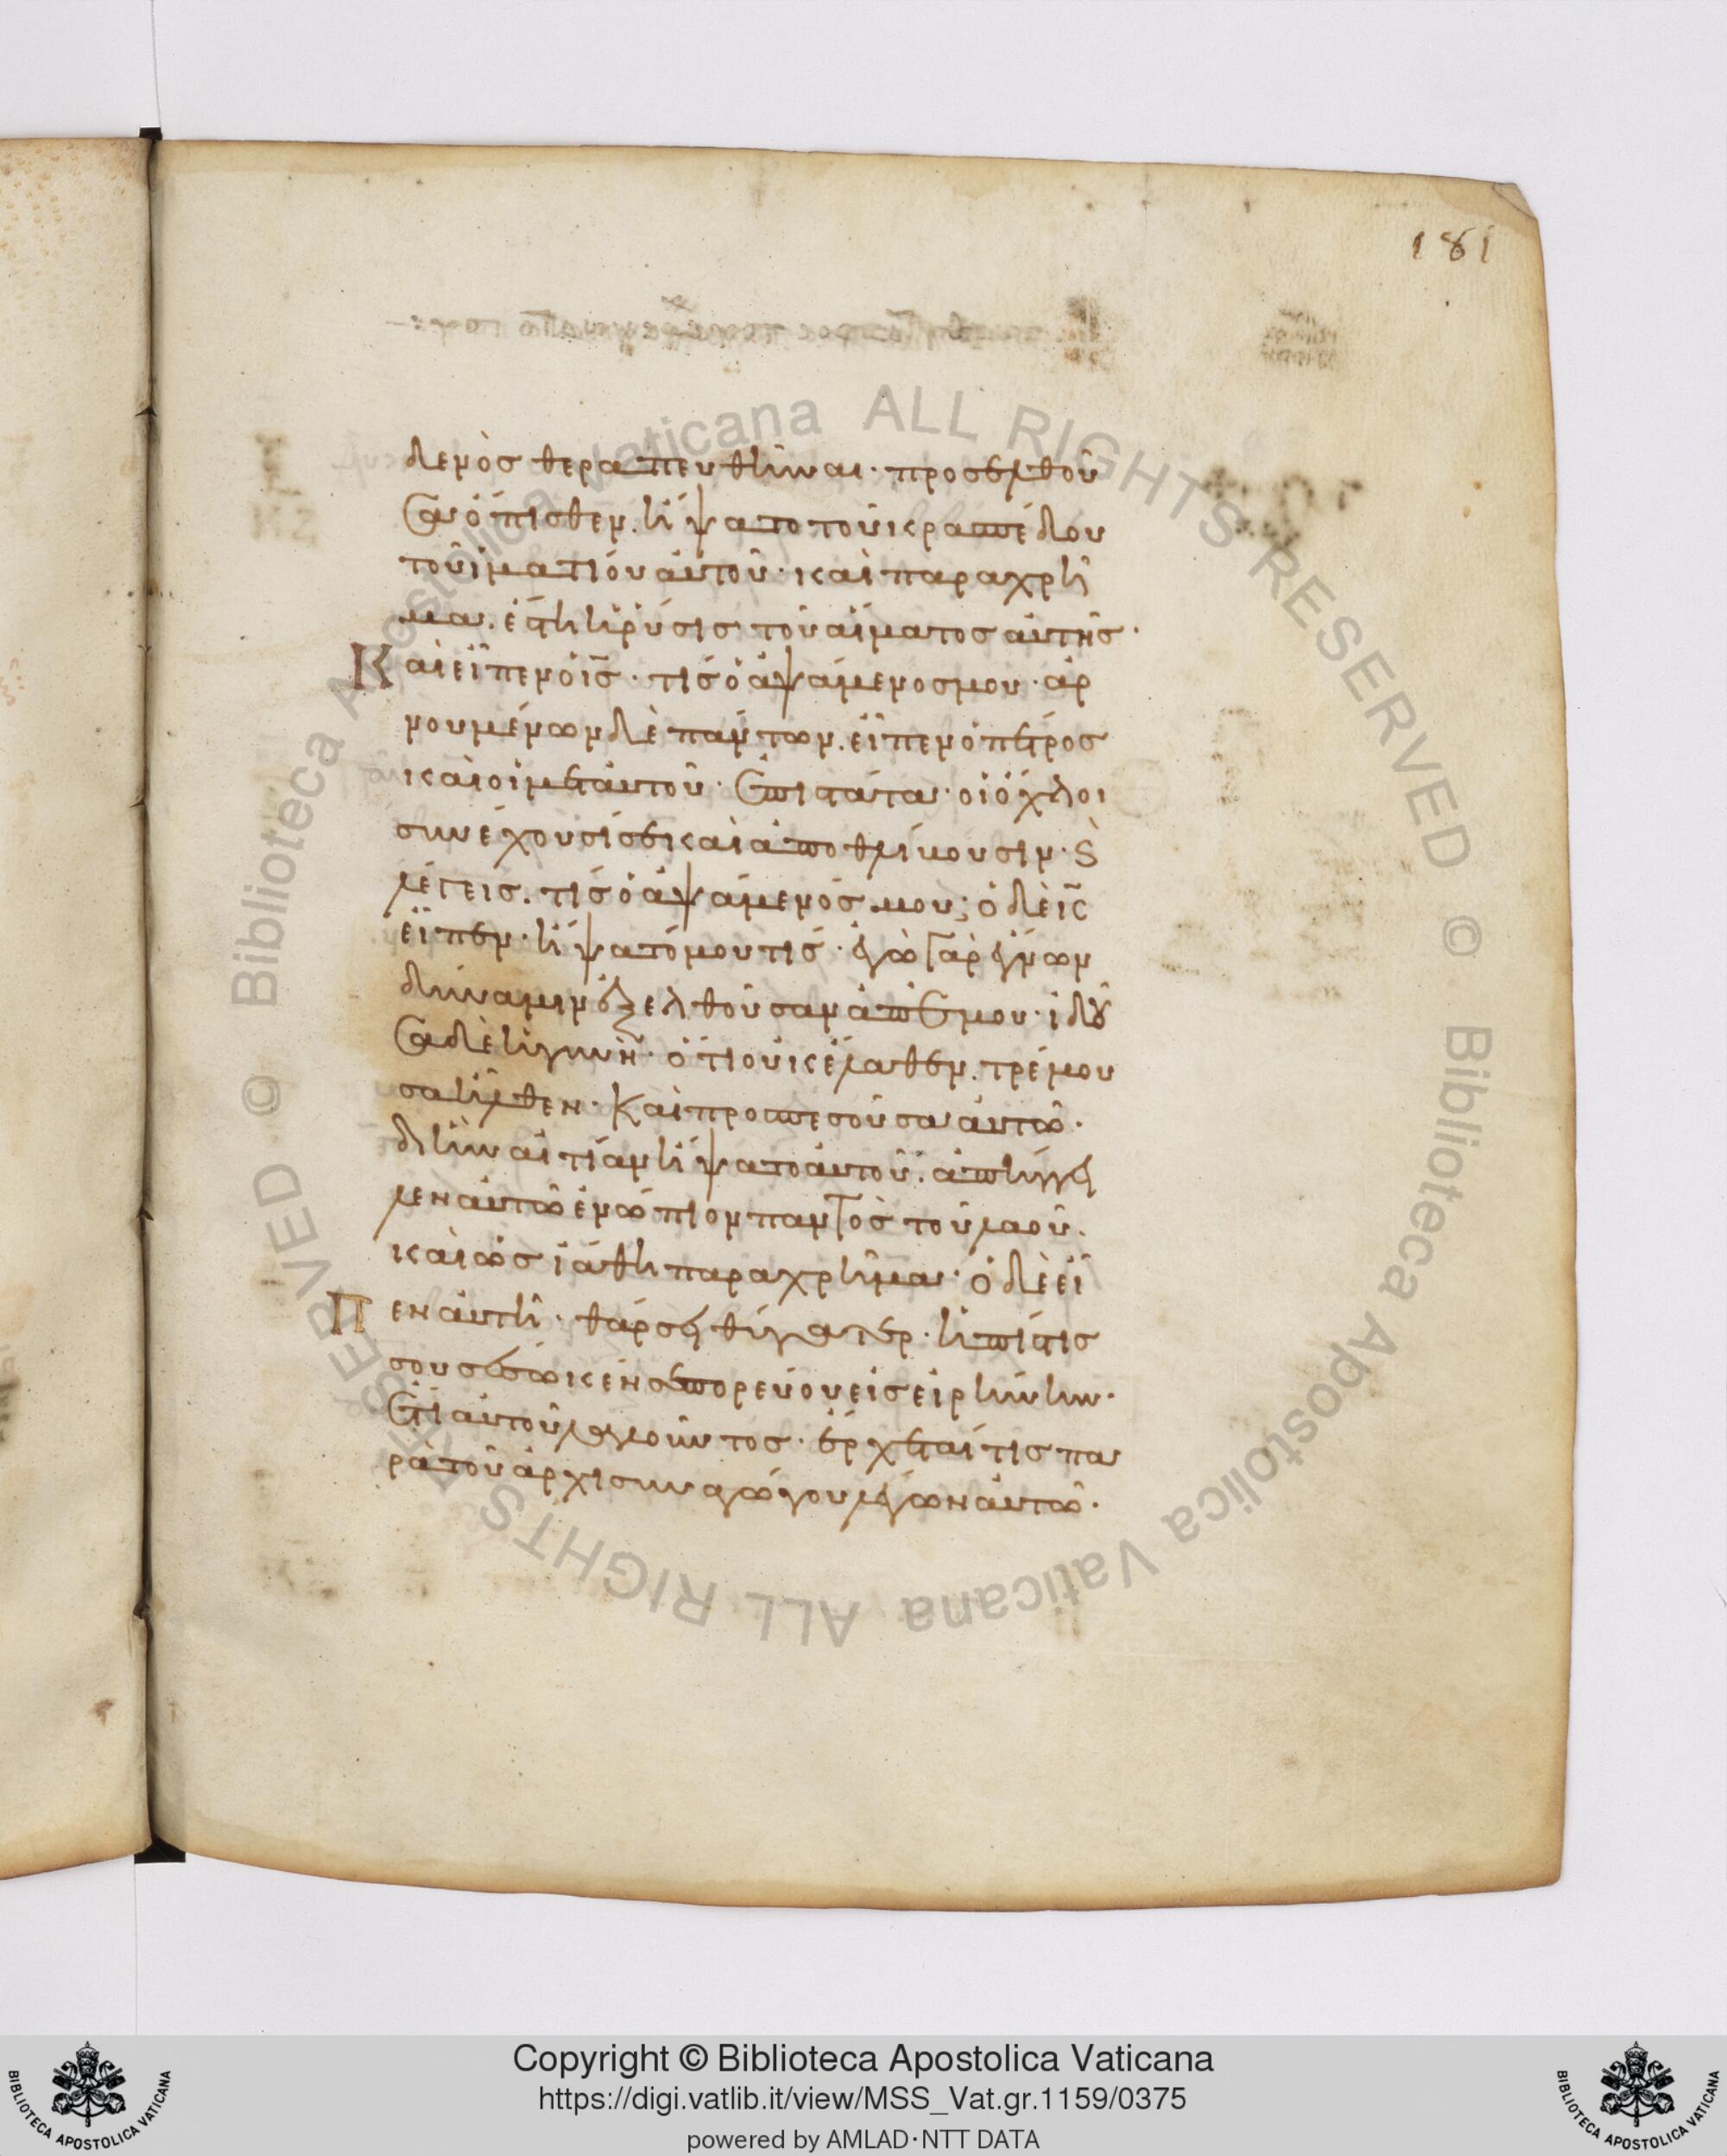 181
δενὸσ θεραπευθῆναι· προσελθοῦ
σα ὄπισθεν. ἥψατο τοῦ κρασπέδου
τοῦ ἱματίου αὐτοῦ· καὶ παραχρῆ
μα. ἔστη ἡ ῥύσισ τοῦ αἵματοσ αὐτῆσ·
Καὶ εἶπεν ὁ ι̅σ̅· τίσ ὁ ἁψάμενοσ μου· ἀρ
νουμένων δὲ πάντων. εἶπεν ὁ πέτροσ
καὶ οἱ μετ αὐτοῦ· Ἐπιστάτα· οἱ ὄχλοι
συνέχουσί σε καὶ ἀποθλίβουσιν· ϗ
λέγεισ. τίσ ὁ ἁψάμενόσ μου; ὁ δὲ ι̅σ̅
εἶπεν· ἥψατό μου τίσ· ἐγὼ γὰρ ἔγνων
δύναμιν ἐξελθοῦσαν ἀπ ἐμου· ἰδοῦ
σα δὲ ἡ γυνὴ· ὅτι οὐκ ἔλαθεν. τρέμου
σα ἦλθεν· Καὶ προσπεσοῦσα αὐτῶ·
δι ἣν αἰτίαν ἥψατο αὐτοῦ. ἀπήγγει
λεν αὐτῶ ἐνώπιον παντὸσ τοῦ λαοῦ.
καὶ ὡσ ἰάθη παραχρῆμα· ὁ δὲ εἶ
Πεν αὐτῆ· θάρσει θύγατερ· ἡ πίστισ
σου σέσωκέν σε πορεύου εἰσ εἰρήνην·
Ἔτι αὐτοῦ λαλοῦντοσ· ἔρχεταί τισ πα
ρὰ τοῦ ἀρχισυναγώγου λέγων αὐτῶ·
Copyright © Biblioteca Apostolica Vaticana
https://digi.vatlib.it/view/MSS_Vat.gr.1159/0375
powered by AMLAD·NTT DATA